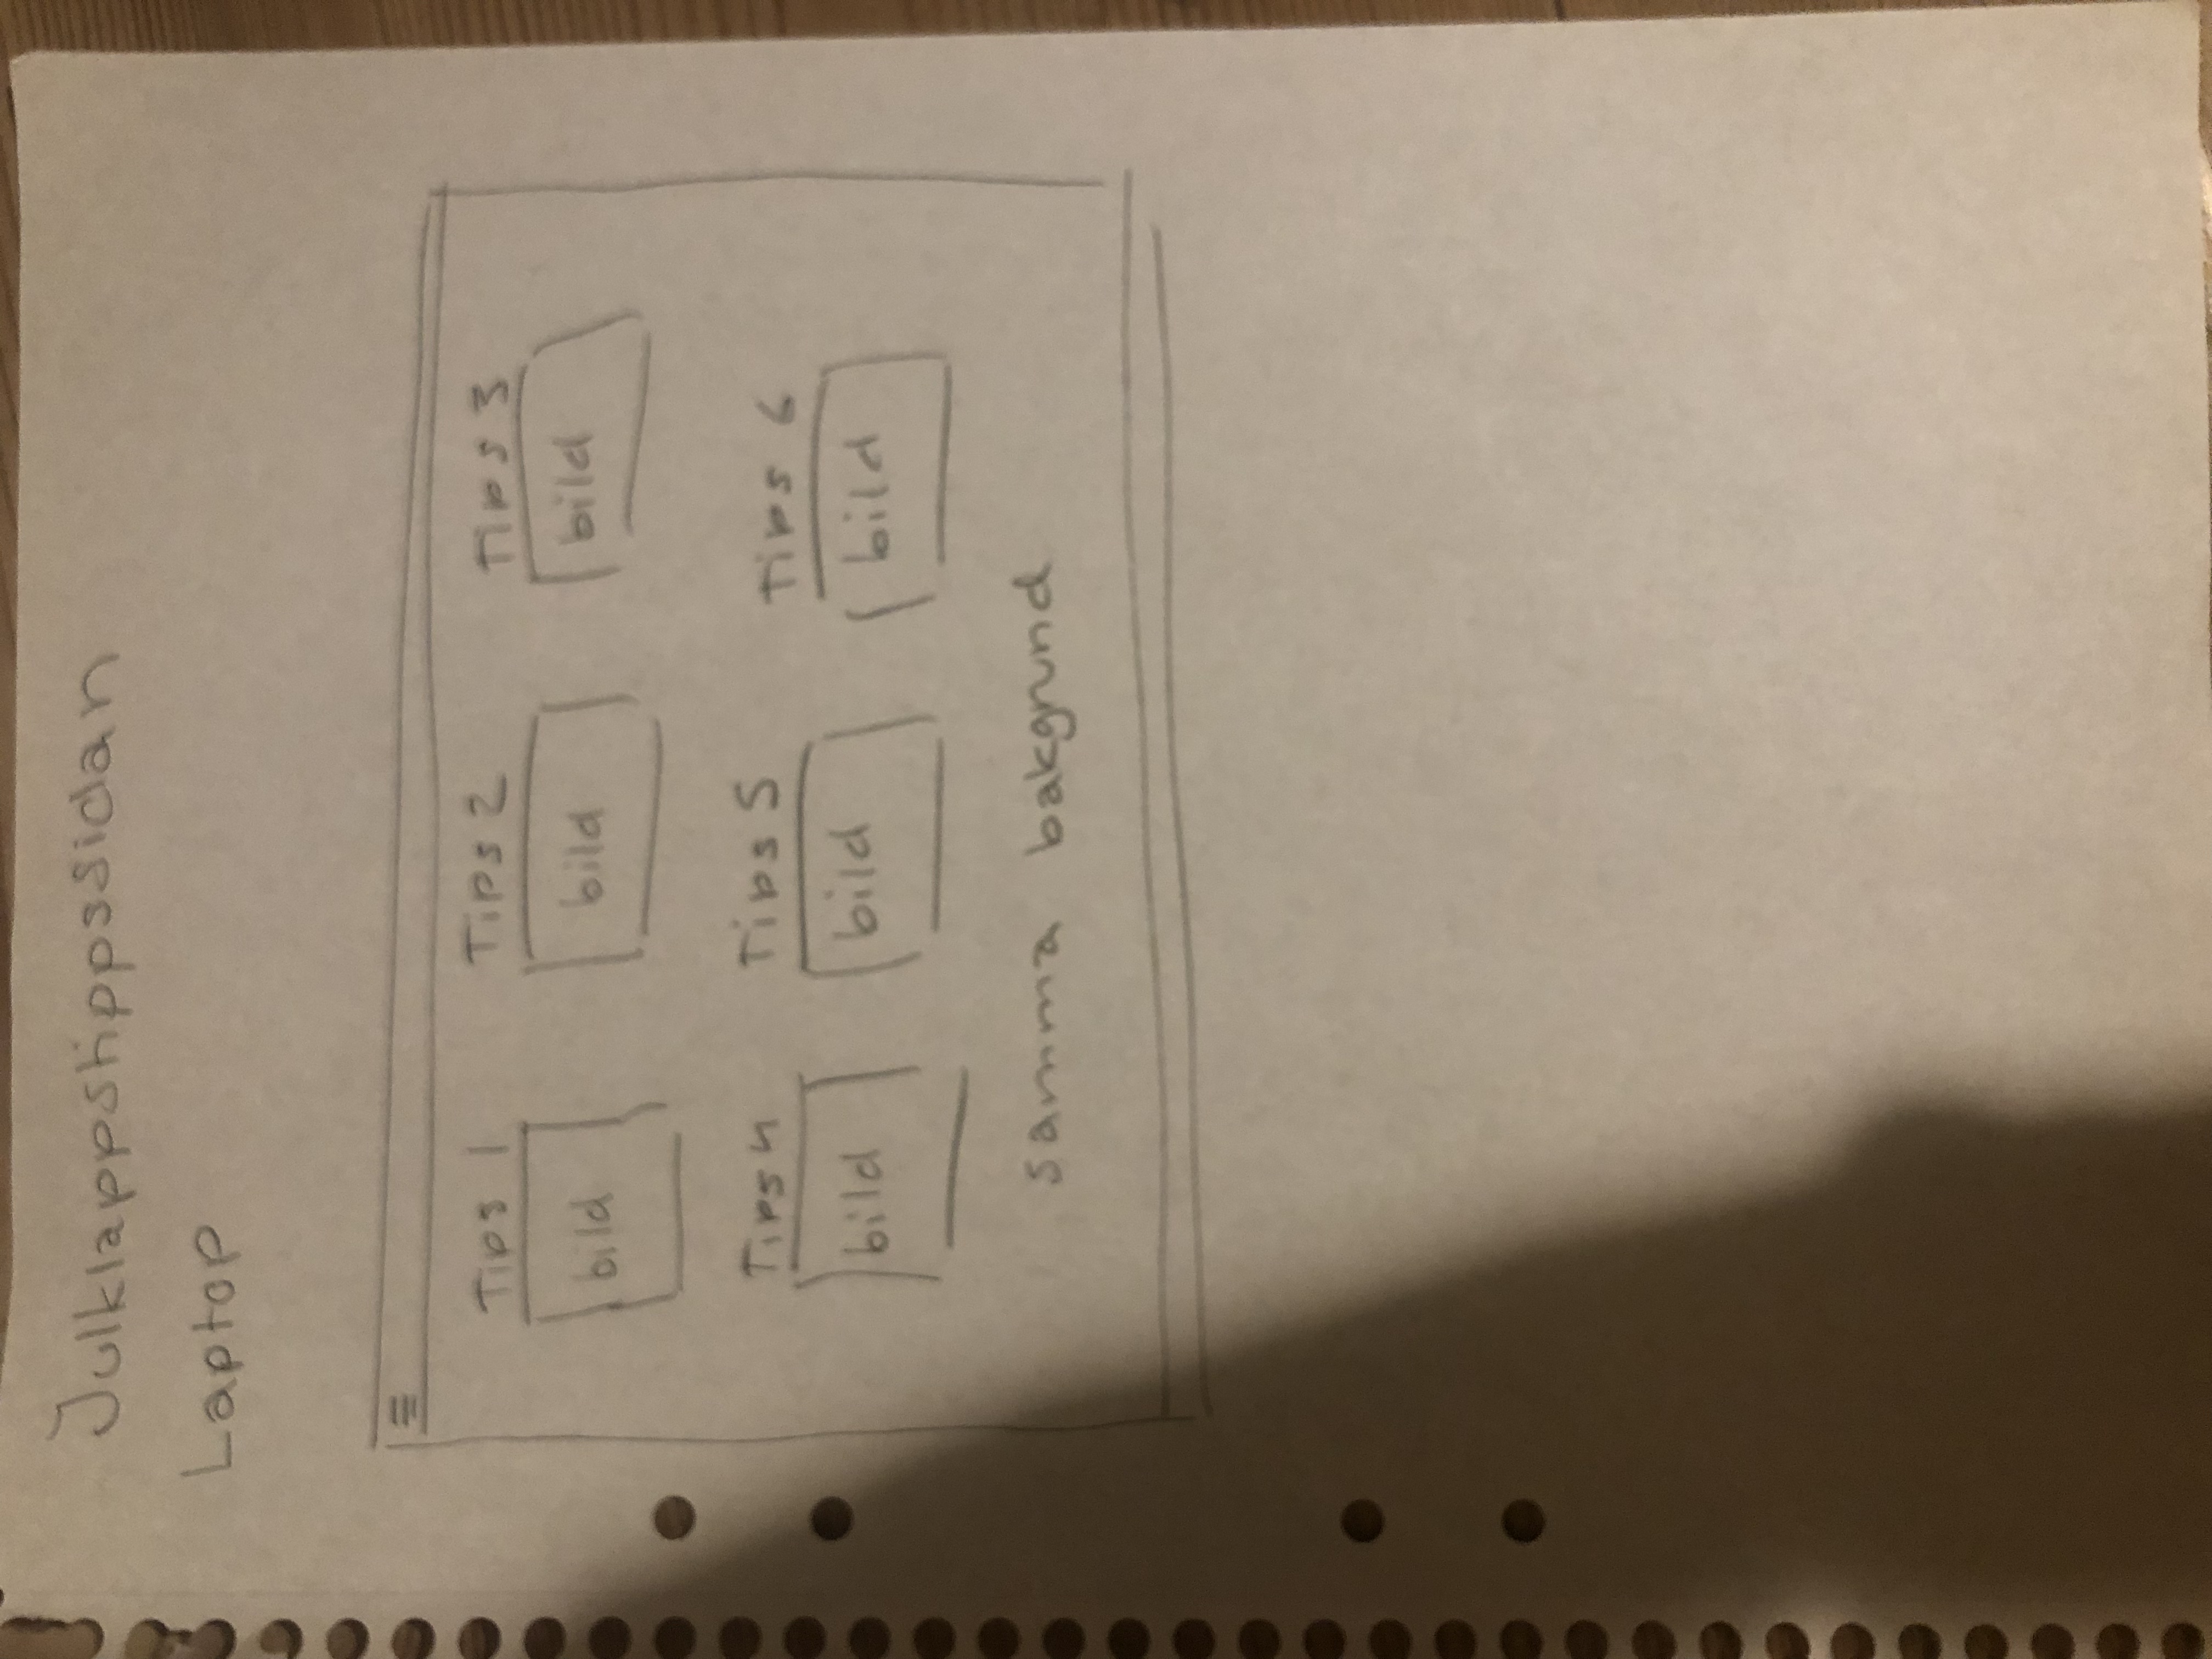 Julklappstippssidan
Laptop
Tips 1 Tips 2 Tips 3
bild bild bild
Tips 4 Tips 5 Tips 6
bild bild bild
samma bakgrund